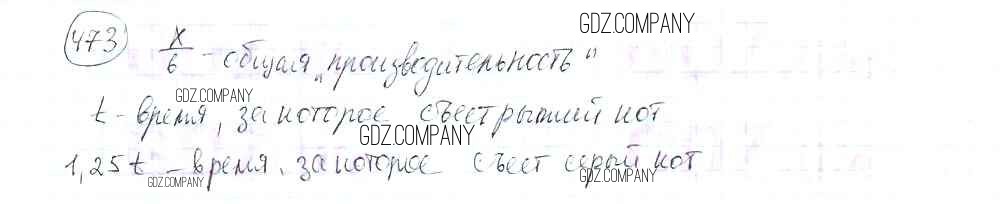 GDZ.COMPANY
473 x/6 - общая „производительность"
GDZ.COMPANY
t - время, за которое съест рыжий кот
GDZ.COMPANY
1,25t - время, за которое съест серый кот
GDZ.COMPANY
GDZ.COMPANY